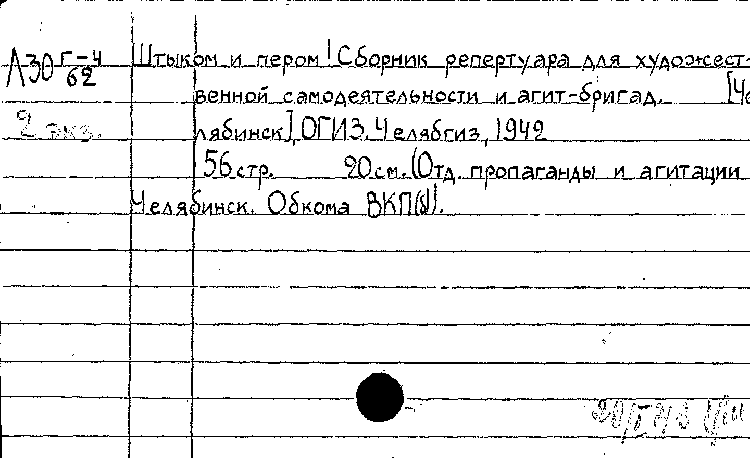 Л30 г-4/62
Штыком и пером! Сборник репертуара для художест-
венной самодеятельности и агит-бригад. [Че
2 экз.
лябинск], ОГИЗ. Челябгиз, 1942
56 стр. 20 см. (Отд. пропаганды и агитации
Челябинск. Обкома ВКП(б)).